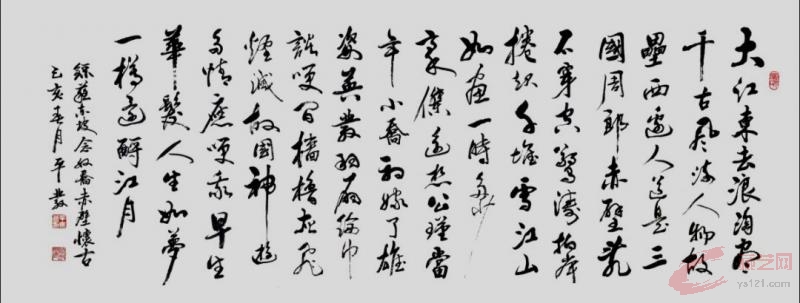 大江東去浪淘盡
千古風流人物故
壘西邊人道是三
國周郎赤壁亂
石穿空驚濤拍岸
捲起千堆雪江山
如畫一時多少
豪傑遙想公瑾當
年小喬初嫁了雄
姿英發羽扇綸巾
談咲間檣櫓灰飛
煙滅故國神遊
多情應咲我早生
華髮人生如夢
一樽還酹江月
錄蘇東坡念奴嬌赤壁懷古
己亥春月平
艺网
ys121.com